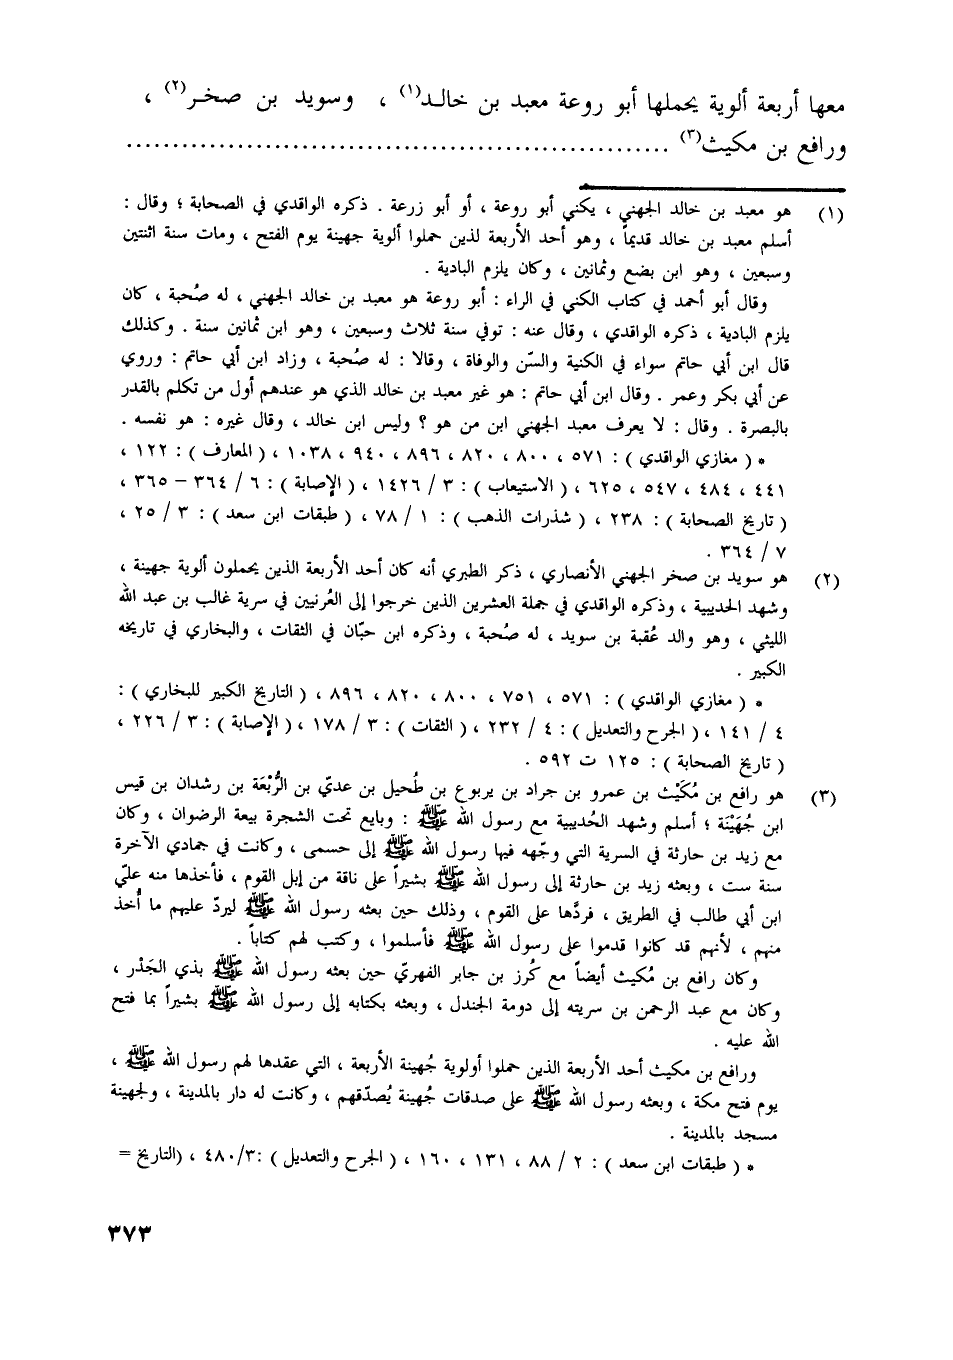 معها أربعة ألوية يحملها أبو روعة معبد بن خالد(١) ، وسويد بن صخر(٢) ،
ورافع بن مكيث(٣) ............................................................
(١) هو معبد بن خالد الجهني ، يكنى أبو روعة ، أو أبو زرعة . ذكره الواقدي في الصحابة ؛ وقال :
أسلم معبد بن خالد قديماً ، وهو أحد الأربعة لذين حملوا ألوية جهينة يوم الفتح ، ومات سنة اثنتين
وسبعين ، وهو ابن بضع وثمانين ، وكان يلزم البادية .
وقال أبو أحمد في كتاب الكنى في الراء : أبو روعة هو معبد بن خالد الجهني ، له صُحبة ، كان
يلزم البادية ، ذكره الواقدي ، وقال عنه : توفي سنة ثلاث وسبعين ، وهو ابن ثمانين سنة . وكذلك
قال ابن أبي حاتم سواء في الكنية والسّن والوفاة ، وقالا : له صُحبة ، وزاد ابن أبي حاتم : وروي
عن أبي بكر وعمر . وقال ابن أبي حاتم : هو غير معبد بن خالد الذي هو عندهم أول من تكلم بالقدر
بالبصرة . وقال : لا يعرف معبد الجهني ابن من هو ؟ وليس ابن خالد ، وقال غيره : هو نفسه .
* ( مغازي الواقدي ) : ٥٧١ ، ٨٠٠ ، ٨٢٠ ، ٨٩٦ ، ٩٤٠ ، ١٠٣٨ ، ( المعارف ) : ١٢٢ ،
٤٤١ ، ٤٨٤ ، ٥٤٧ ، ٦٢٥ ، ( الاستيعاب ) : ٣ / ١٤٢٦ ، ( الإصابة ) : ٦ / ٣٦٤ – ٣٦٥ ،
( تاريخ الصحابة ) : ٢٣٨ ، ( شذرات الذهب ) : ١ / ٧٨ ، ( طبقات ابن سعد ) : ٣ / ٢٥ ،
٧ / ٣٦٤ .
(٢) هو سويد بن صخر الجهني الأنصاري ، ذكر الطبري أنه كان أحد الأربعة الذين يحملون ألوية جهينة ،
وشهد الحديبية ، وذكره الواقدي في جملة العشرين الذين خرجوا إلى العُرنيين في سرية غالب بن عبد الله
الليثي ، وهو والد عُقبة بن سويد ، له صُحبة ، وذكره ابن حبّان في الثقات ، والبخاري في تاريخه
الكبير .
* ( مغازي الواقدي ) : ٥٧١ ، ٧٥١ ، ٨٠٠ ، ٨٢٠ ، ٨٩٦ ، ( التاريخ الكبير للبخاري ) :
٤ / ١٤١ ، ( الجرح والتعديل ) : ٤ / ٢٣٢ ، ( الثقات ) : ٣ / ١٧٨ ، ( الإصابة ) : ٣ / ٢٢٦ ،
( تاريخ الصحابة ) : ١٢٥ ت ٥٩٢ .
(٣) هو رافع بن مُكَيْث بن عمرو بن جراد بن يربوع بن طُحيل بن عديّ بن الرُّبْعَة بن رشدان بن قيس
ابن جُهَيْنَة ؛ أسلم وشهد الحُديبية مع رسول الله ﷺ : وبايع تحت الشجرة بيعة الرضوان ، وكان
مع زيد بن حارثة في السرية التي وجّهه فيها رسول الله ﷺ إلى حسمى ، وكانت في جمادي الآخرة
سنة ست ، وبعثه زيد بن حارثة إلى رسول الله ﷺ بشيراً على ناقة من إبل القوم ، فأخذها منه عليّ
ابن أبي طالب في الطريق ، فردَّها على القوم ، وذلك حين بعثه رسول الله ﷺ ليردّ عليهم ما أُخذ
منهم ، لأنهم قد كانوا قدموا على رسول الله ﷺ فأسلموا ، وكتب لهم كتاباً .
وكان رافع بن مُكيث أيضاً مع كُرز بن جابر الفهريّ حين بعثه رسول الله ﷺ بذي الجَدْر ،
وكان مع عبد الرحمن بن سريته إلى دومة الجندل ، وبعثه بكتابه إلى رسول الله ﷺ بشيراً بما فتح
الله عليه .
ورافع بن مكيث أحد الأربعة الذين حملوا أولوية جُهينة الأربعة ، التي عقدها لهم رسول الله ﷺ ،
يوم فتح مكة ، وبعثه رسول الله ﷺ على صدقات جُهينة يُصدّقهم ، وكانت له دار بالمدينة ، ولجهينة
مسجد بالمدينة .
* ( طبقات ابن سعد ) : ٢ / ٨٨ ، ١٣١ ، ١٦٠ ، ( الجرح والتعديل ) :٣/٤٨٠ ، (التاريخ =
٣٧٣